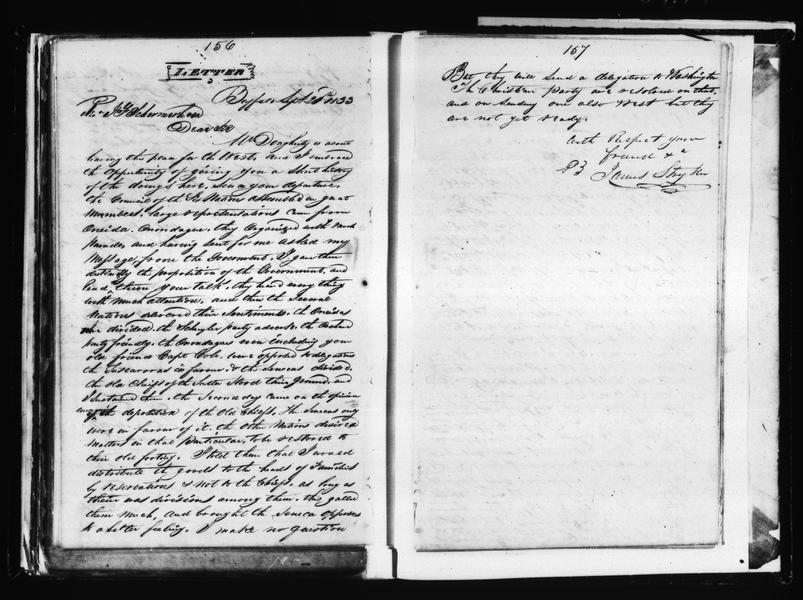 156
LETTER
Buffalo Sept 1833
J F Schermerhorn
Dear Sir
Mr Dougherty is about
having the place for the West, and I embrace
the Opportunity of giving you a short history
of the doings here, since your departure,
the Council of the Six Nations assembled in great
numbers, large representations came from
Oneida, Onondagua, they Organized with much
and having sent for me asked my
Message, from the Government, I gave them
distinctly the proposition of the Government, and
read them your talk, they heard every thing
with much attention, and then the several
Nations delivered their sentiments, the Oneidas
divided, the Schuyler party adverse, the Orchard
party friendly, the Onondagas even including your
old friend Capt Cole, were opposed to delegations
the Tuscaroras in favour, & the Senecas divided,
the old Chiefs of the latter stood their ground, and
I sustained them, the second day came on the opinion
of the deposition of the old Chiefs, The Senecas only
were in favour of it, the other Nations desired
matters in that particular, to be restored to
their old footing. I told them that I would
distribute the goods to the heads of Families
by reservations & not to the Chiefs, as long as
there was divisions among them, this galled
them much, and brought the Seneca
to a better feeling. I make no question
157
But they will send a delegation to Washington
The Christian party are resolved on that,
and on sending one also West but they
are not yet ready.
With Respect your
friend &c
James Stryker